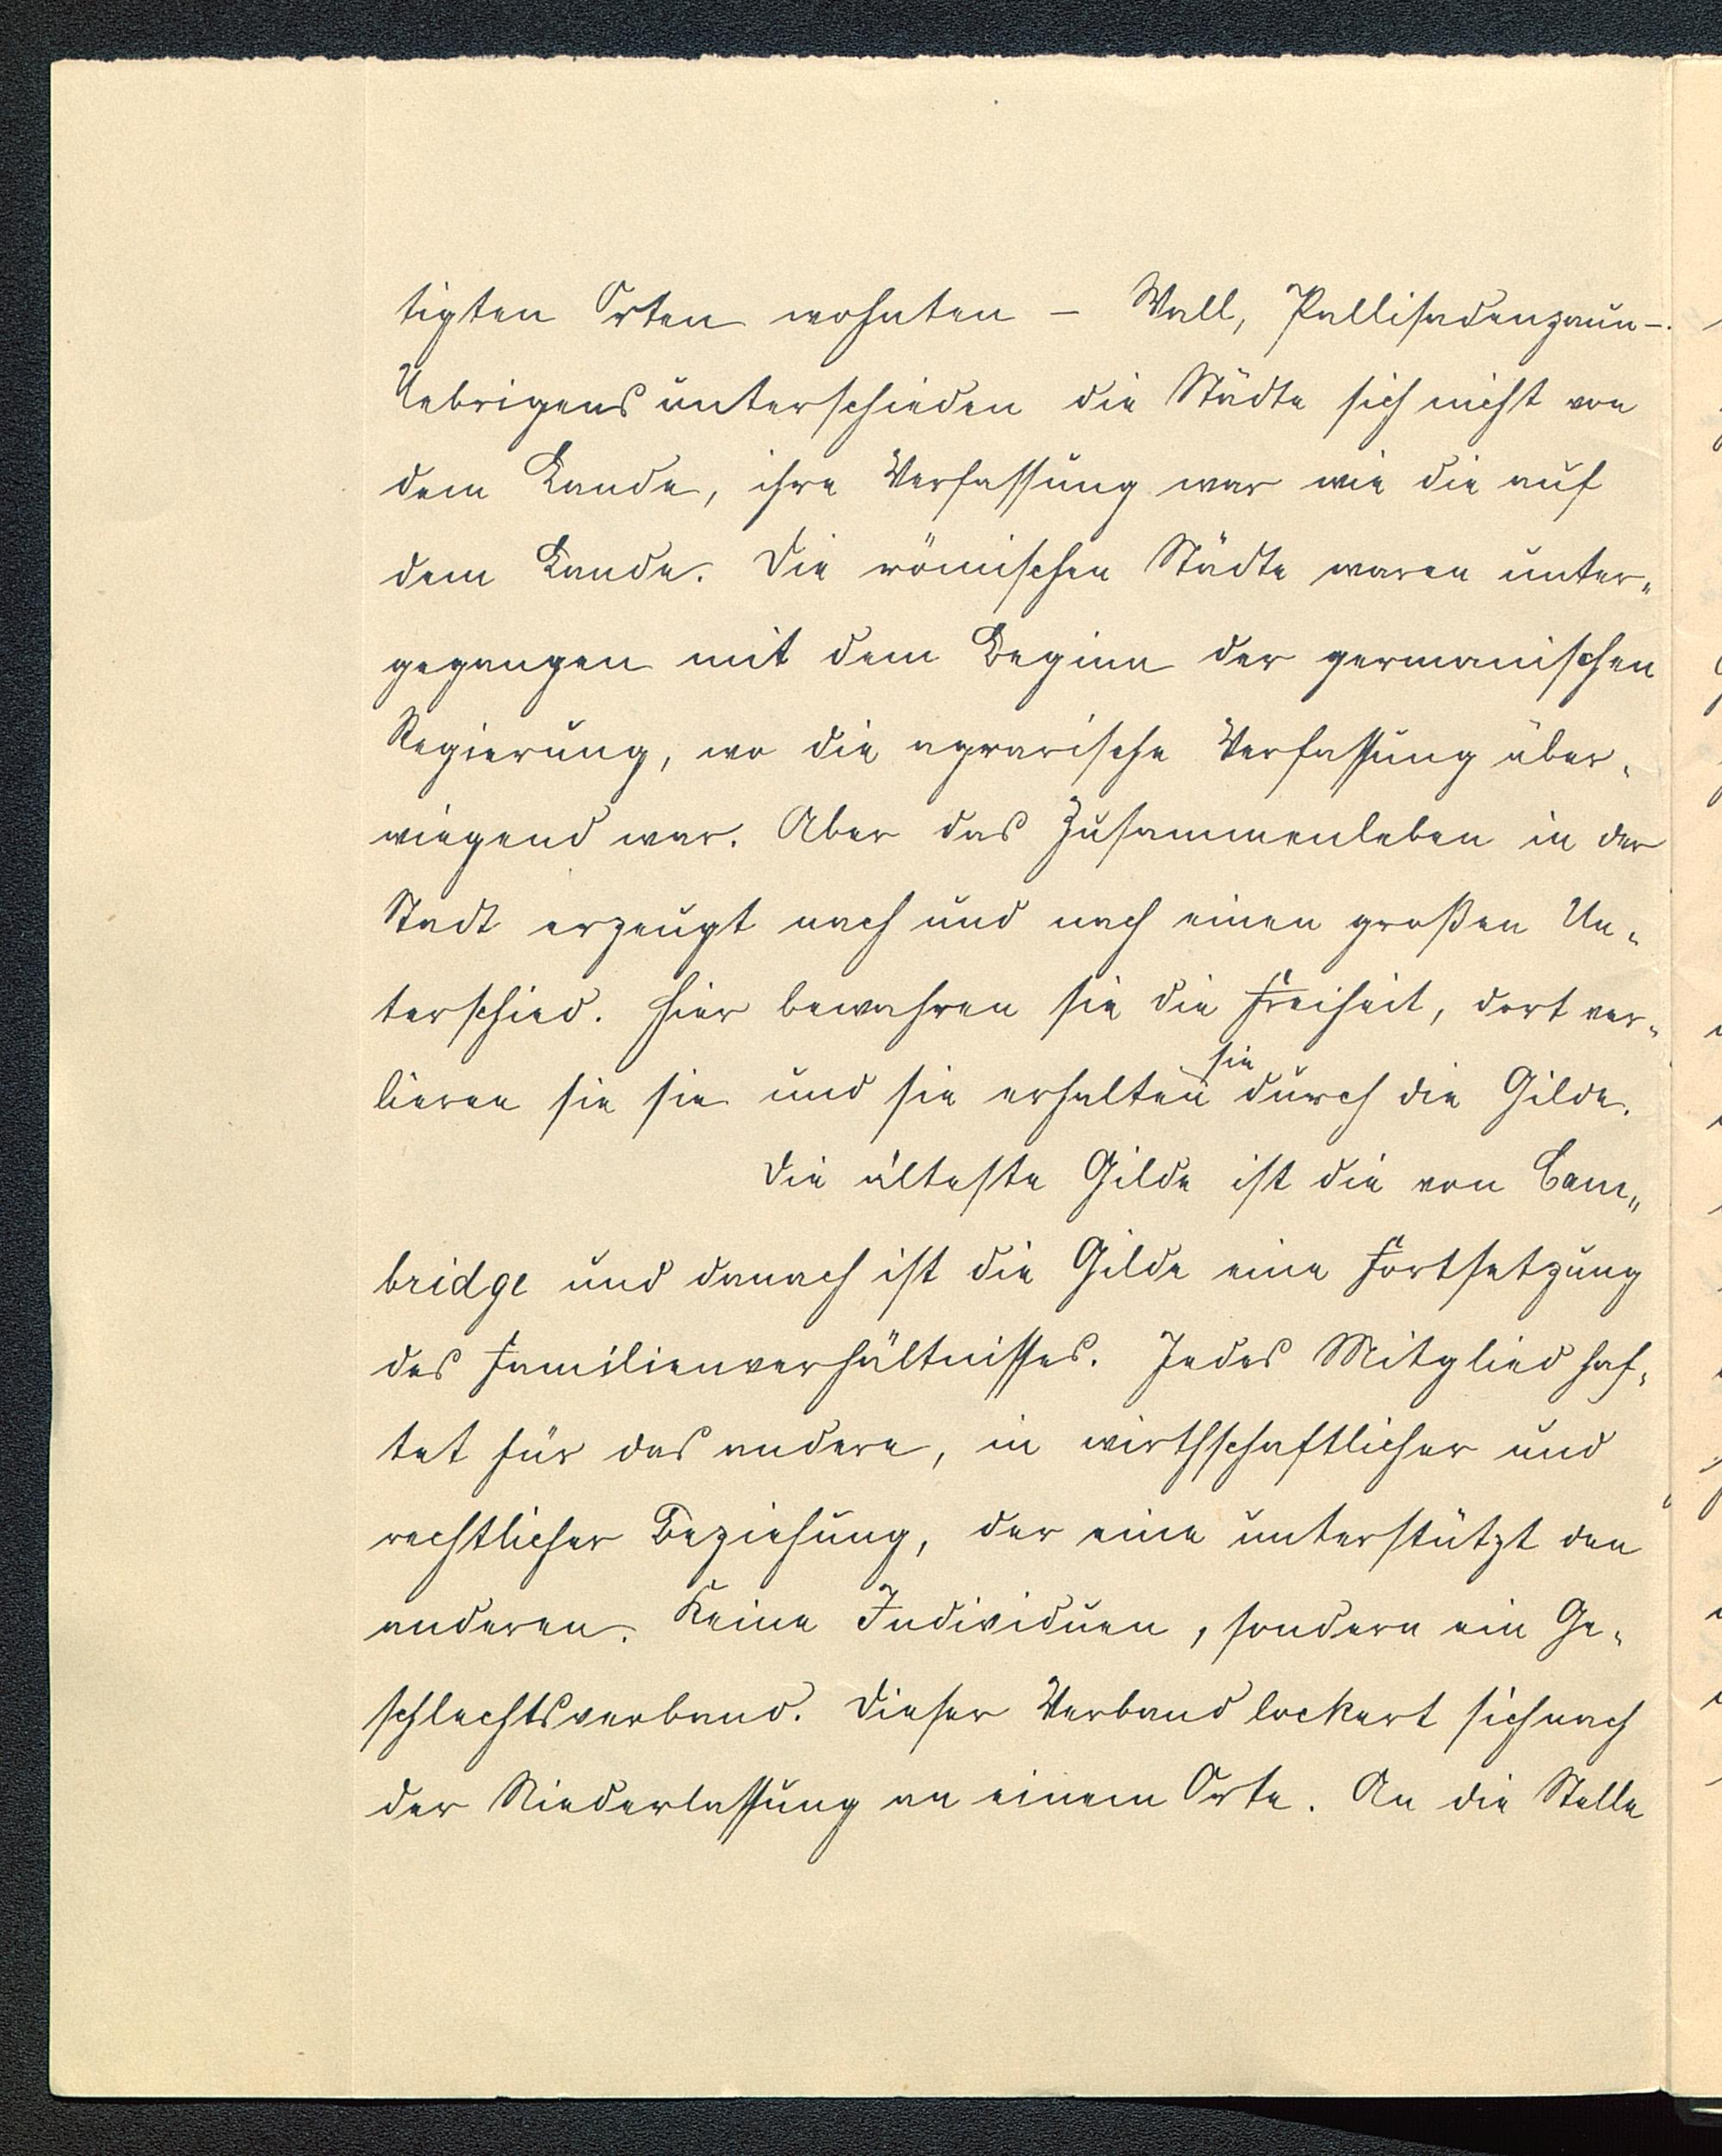 tigten Orten wohnten – Wall, Pallisadenzaun –.
Uebrigens unterschieden die Städte sich nicht von
dem Lande, ihre Verfassung war wie die auf
dem Lande. Die römischen Städte waren unter-
gegangen mit dem Beginn der germanischen
Regierung, wo die agrarische Verfassung über-
wiegend war. Aber das Zusammenleben in der
Stadt erzeugt nach und nach einen großen Un-
terschied. Hier bewahren sie die Freiheit, dort ver-
sie
lieren sie sie und sie erhalten durch die Gilde.
Die älteste Gilde ist die von Cam-
bridge und danach ist die Gilde eine Fortsetzung
des Familienverhältnisses. Jedes Mitglied haf-
tet für das andere, in wirthschaftlicher und
rechtlicher Beziehung, der eine unterstützt den
anderen. Keine Individuen, sondern ein Ge-
schlechtsverband. Dieser Verband lockert sich nach
der Niederlassung an einem Orte. An die Stelle